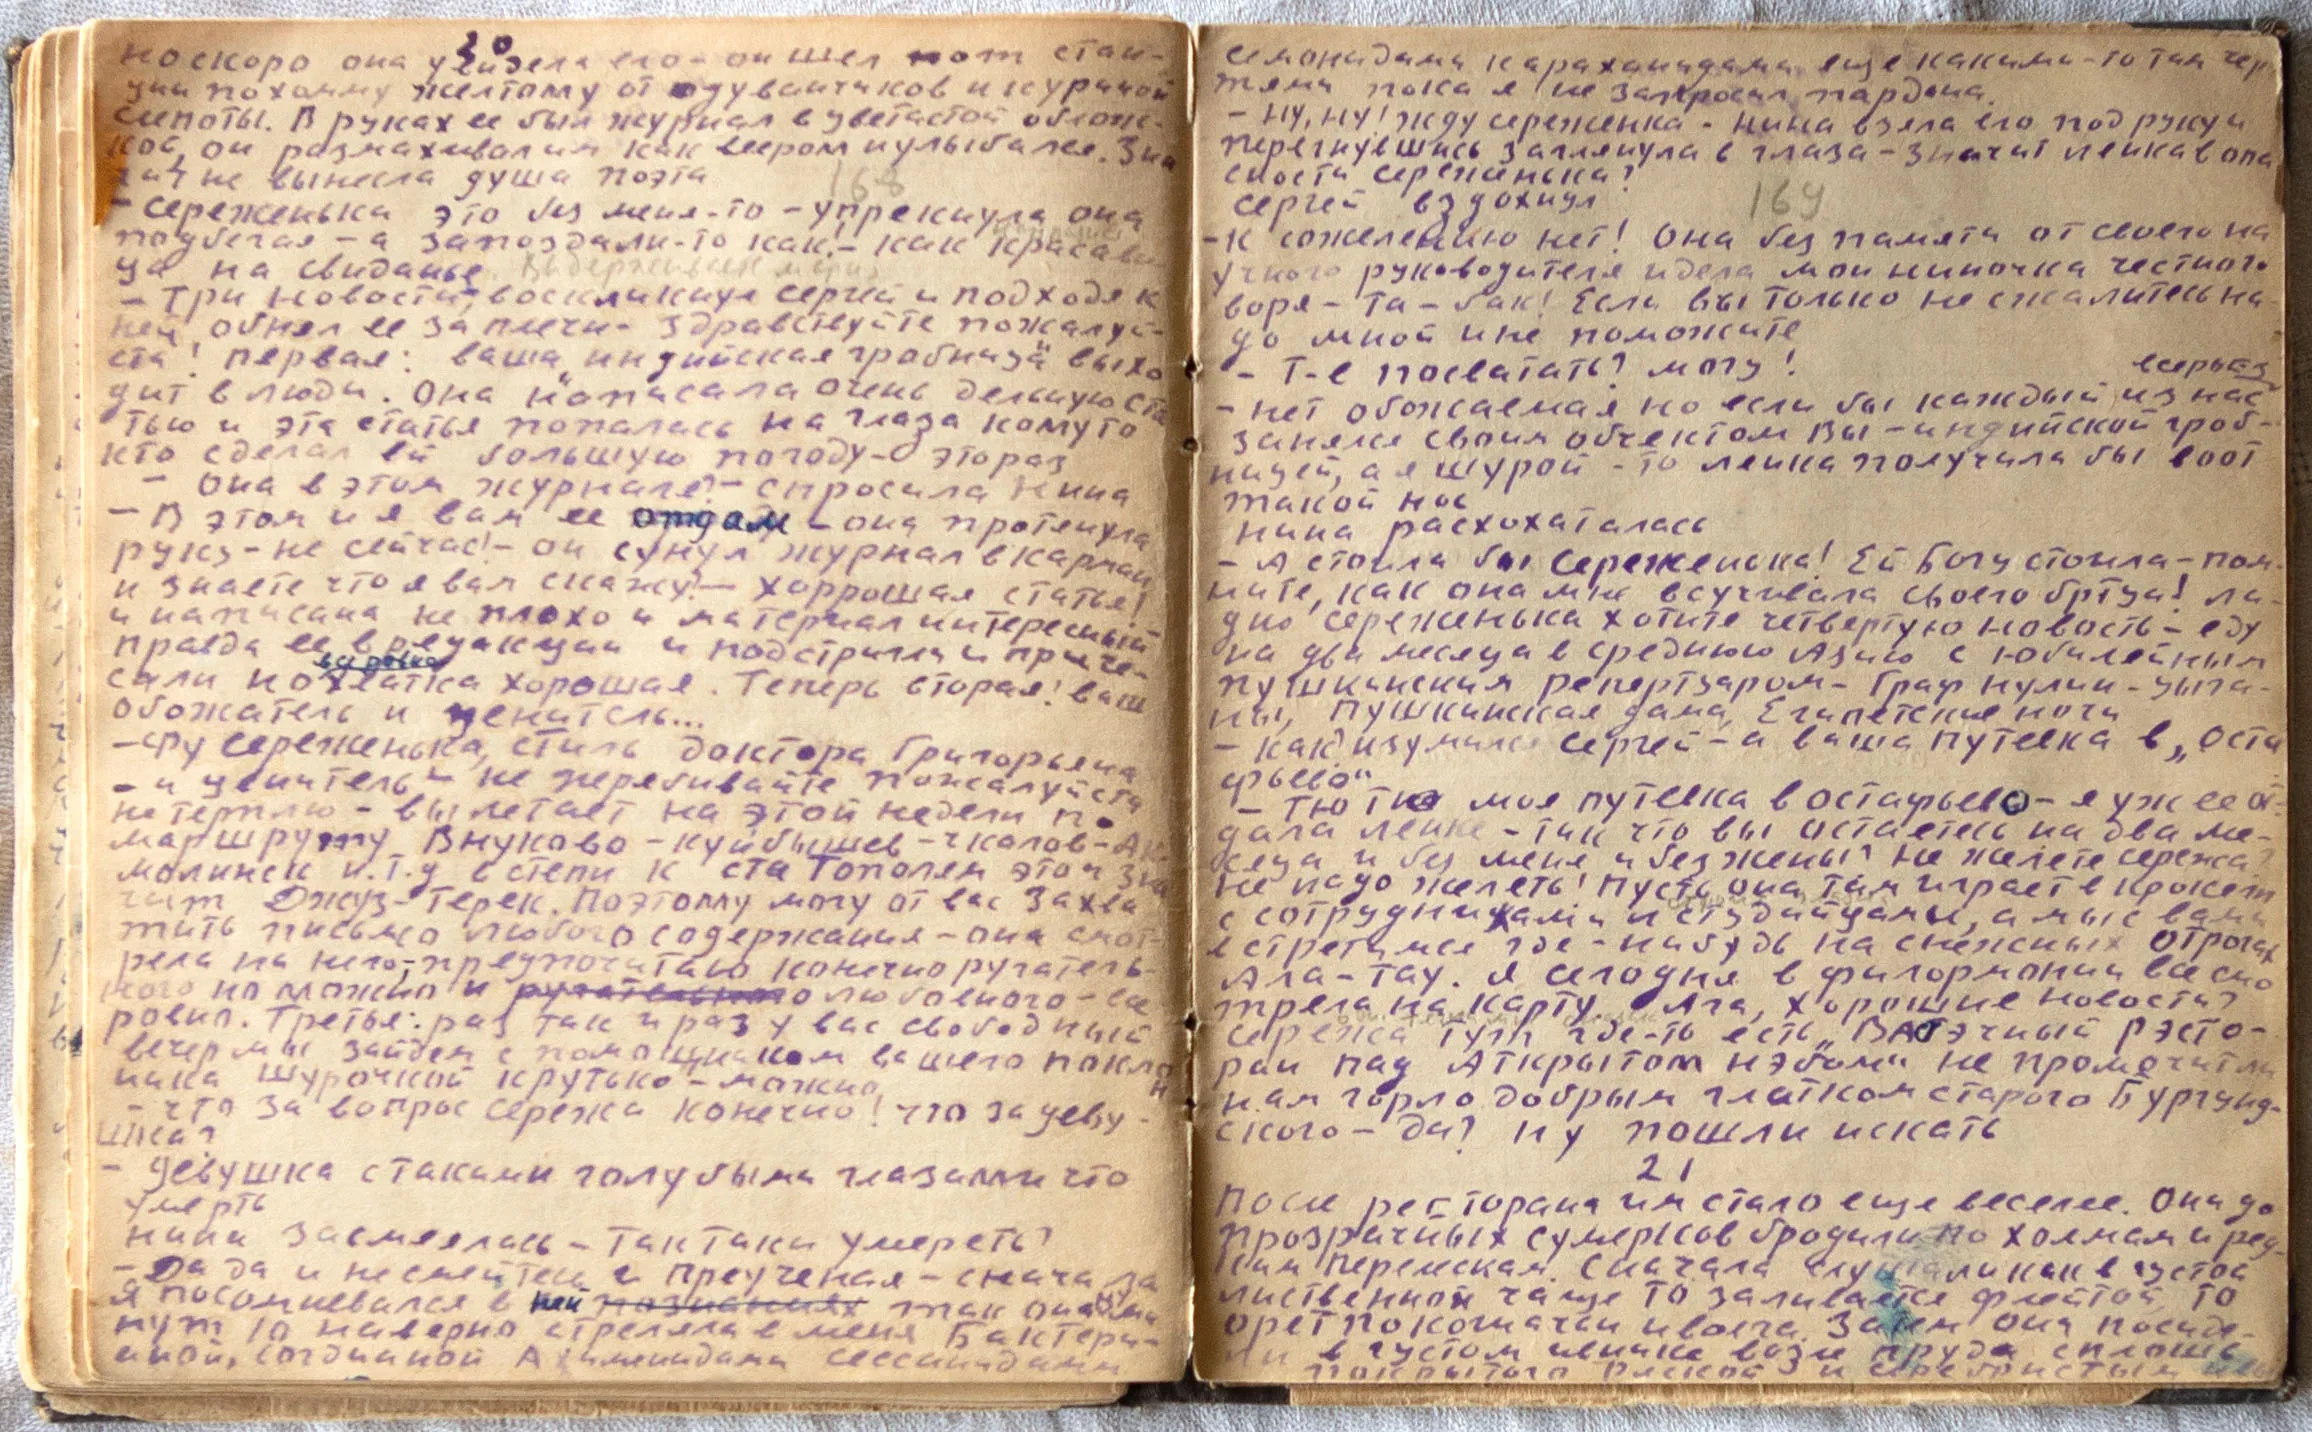 20
но скоро она увидела его - он шел от стан-
ции по холму желтому от одуванчиков и куриной
слепоты. В руках ее был журнал в цветастой облож-
кой, он размахивал им как веером и улыбался. Зна
чит не вынесла душа поэта
168
- Сереженька это без меня-то - упрекнула она
подбегая - а запоздали-то как! - как красави
ца на свиданье
- Три новости, воскликнул Сергей и подходя к
ней, обнял ее за плечи - здравствуйте пожалуй-
ста! Первая: ваша "индийская гробница" выхо
дит в люди. Она написала очень дельную ста
тью и эта статья попалась на глаза кому то
кто сделал ей большую погоду - это раз
- Она в этом журнале? - спросила Нина
- В этом и я вам ее отдам - она протянула
руку - не сейчас! - он сунул журнал в карман
и знаете что я вам скажу? - хоррошая статья!
и написана не плохо и материал интересный
правда ее в редакции и подстригли и приче-
сали но хватка хорошая. Теперь вторая! ваш
обожатель и ценитель...
- Фу Сереженька, стиль доктора Григорьяна
- и ценитель - не перебивайте пожалуйста
не терплю - вылетает на этой недели по
маршруту Внуково - Куйбышев - Чкалов - Ак
молинск и.т.д в степи к ста Тополям это зна
чит Джуз-Терек. Поэтому могу от вас захва
тить письмо любого содержания - она смот-
рела на него, - предпочитаю конечно ругатель-
ного но можно и ругательного любовного - все
ровно. Третья: раз так и раз у вас свободный
вечер мы зайдем с помощником вашего покло
нника Шурочкой Крутько - можно
- Что за вопрос Сережа конечно! Что за деву-
шка?
- Девушка с такими голубыми глазами что
умерть
Нина засмеялась - так таки умереть?
- Да да и не смейтесь и преученая - сначала
я посомневался в ней познаниях так она ми
нут 10 наверно стреляла в меня Бактери-
аной, согдианой Ахименидами сессанидами
семонидами караханидами еще какими-то там чер
тями пока я не запросил пардона.
- Ну, ну! жду сереженка - Нина взяла его под руку и
перегнувшись заглянула в глаза - значит ленка в опа
сности Сереженька?
169
Сергей вздохнул
- К сожелению нет! Она без памяти от своего на
учного руководителя и дела мои ниночка честного
воря - та - бак! Если вы только не сжалитесь на
до мной и не поможите
- Т-е посватать? могу!
всерьез
- нет обожаемая но если бы каждый из нас
занялся своим объектом Вы - индийской гроб-
ницей, а я Шурой - то ленка получила бы воот
такой нос
Нина расхохаталась
- А стоила бы Сереженька! Ей Богу стоила - пом-
ните, как она мне всучивала своего братца! ла-
дно Сереженька хотите четвертую новость - еду
на два месяца в среднюю Азию с юбилейным
пушкинским репертуаром - Граф Нулин - Цыга-
ны, Пушкинская дама, Египетские ночи
- Как изумился Сергей - а ваша путевка в "Оста
фьево"
- Тю тю моя путевка в Остафьево - я уж ее от-
дала ленке - так что вы остаетесь на два ме-
сяца и без меня и без жены? Не желеете Сережа?
Не надо желеть! Пусть она там играет в крокет
с сотрудниками и студийцами, а мы с вами
встретимся где-нибудь на снежных отрогах
Ала-Тау. Я сегодня в филормонии все смо
трела на карту. Ага, хорошие новости?
Сережа тут где-то есть "Васточный рэсто-
ран пад Аткрытом нэбом" не промочить ли
нам горло добрым глатком старого Бургунд-
ского - да? Ну пошли искать
21
После ресторана им стало еще веселее. Они до
прозрачных сумерков бродили по холмам и ред-
ким перелескам. Сначала слушали как в густой
лиственной чаще то заливается флейтой, то
орет по кошачьи иволга. Затем они посиде-
ли в густом ивнике возле пруда сплошь
покрытого ряской и серебристым